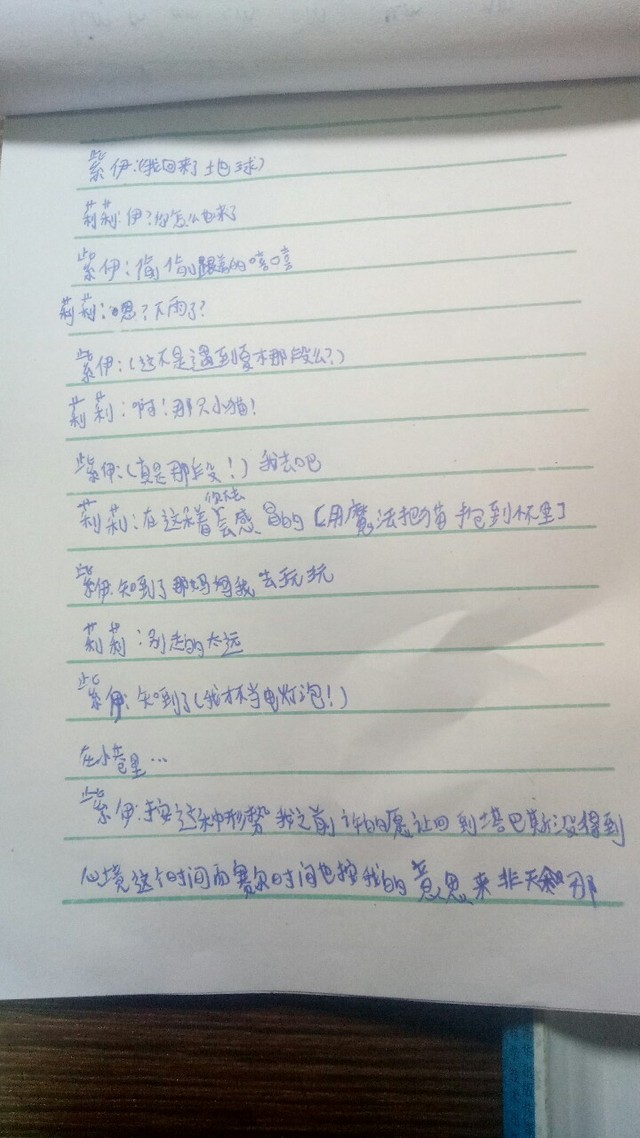 紫伊:(我回来了地球)
莉莉:伊?你怎么也来了
紫伊:偷偷跟着的嘻嘻
莉莉:嗯?下雨了?
紫伊:(这不是遇到嘎木那段么?)
莉莉:啊!那只小猫!
紫伊:(真是那段!)我去吧
莉莉:在这呆着你去会感冒的【用魔法把猫抱到怀里】
紫伊:知到了那妈妈我去玩玩
莉莉:别走的太远
紫伊:知到了(我才不当电灯泡!)
在小巷里…
紫伊:按这种形势我之前许的愿让回到塔巴斯没得到
心境这个时间而赛尔时间也按我的意思来非天 那